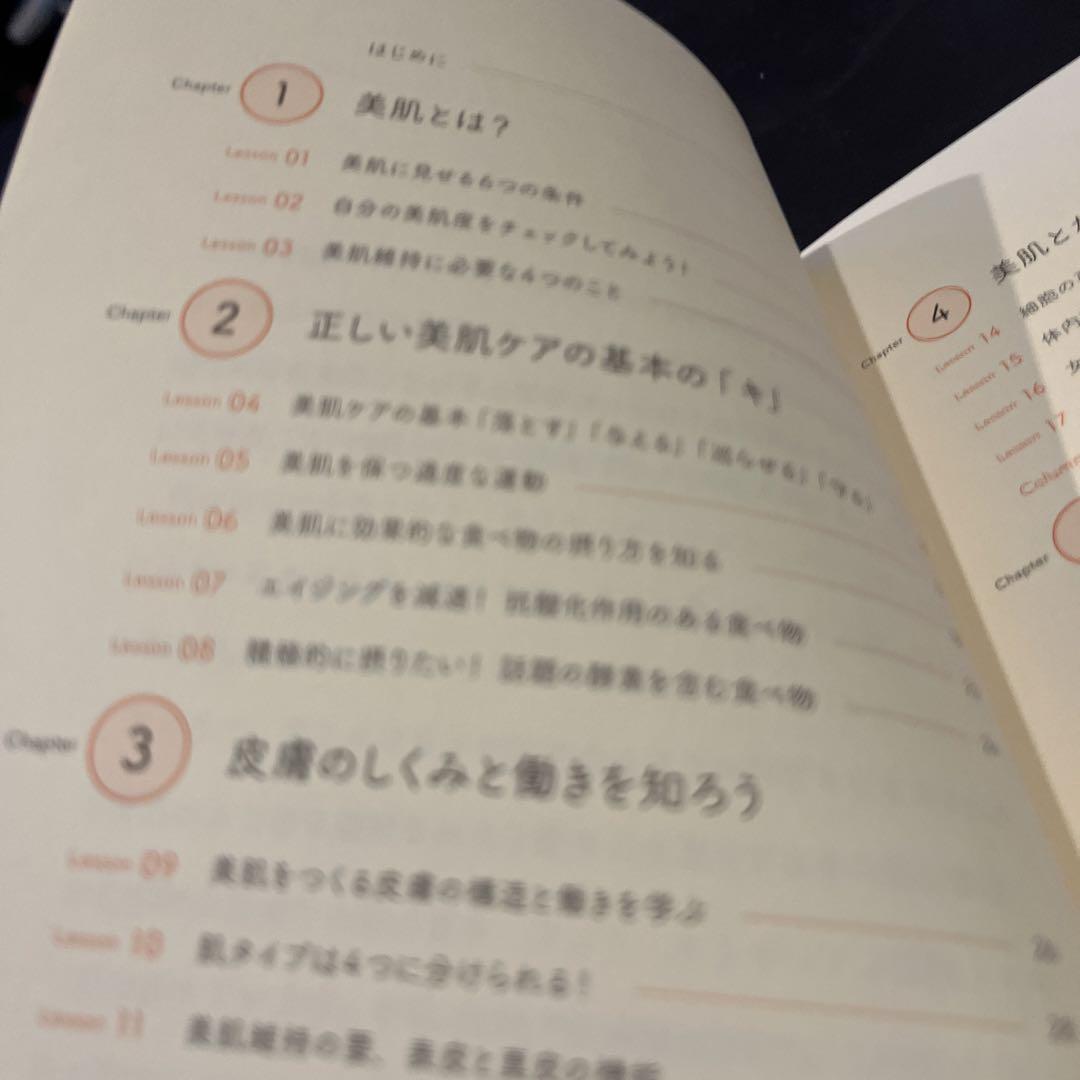 はじめに
Chapter 1 美肌とは?
Lesson 01 美肌に見せる6つの条件
Lesson 02 自分の美肌度をチェックしてみよう!
Lesson 03 美肌維持に必要な4つのこと
Chapter 2 正しい美肌ケアの基本の「キ」
Lesson 04 美肌ケアの基本「落とす」「与える」「巡らせる」「守る」
Lesson 05 美肌を保つ適度な運動
Lesson 06 美肌に効果的な食べ物の摂り方を知る
Lesson 07 エイジングを減速! 抗酸化作用のある食べ物
Lesson 08 積極的に摂りたい! 話題の酵素を含む食べ物
Chapter 3 皮膚のしくみと働きを知ろう
Lesson 09 美肌をつくる皮膚の構造と働きを学ぶ 26
Lesson 10 肌タイプは4つに分けられる! 28
Lesson 11 美肌維持の要、表皮と真皮の機能
Chapter 4 美肌と
Lesson 14 細胞の
Lesson 15 体内
Lesson 16 女
Lesson 17
Column
Chapter